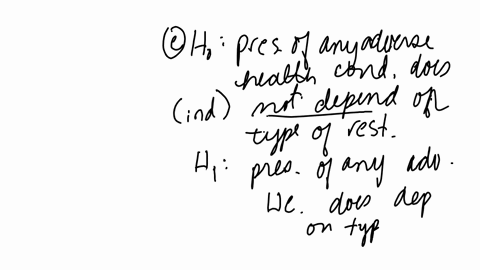 ⓔ H₀: pres. of any adverse
health cond. does
(ind) not depend of
type of rest.
H₁: pres. of any adv.
Hc. does dep
on typ